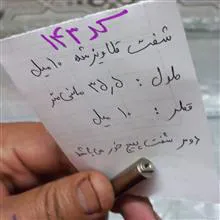 کد ۱۴۳
شفت گالوانیزه شده ۱۰ میل
طول : ۳۵٫۵ سانتی متر
قطر : ۱۰ میل
دو سر شفت پیچ خور می باشد